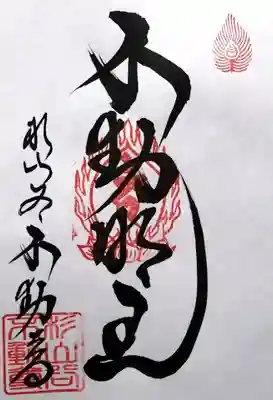 不動明王
杉山谷不動尊
杉山谷